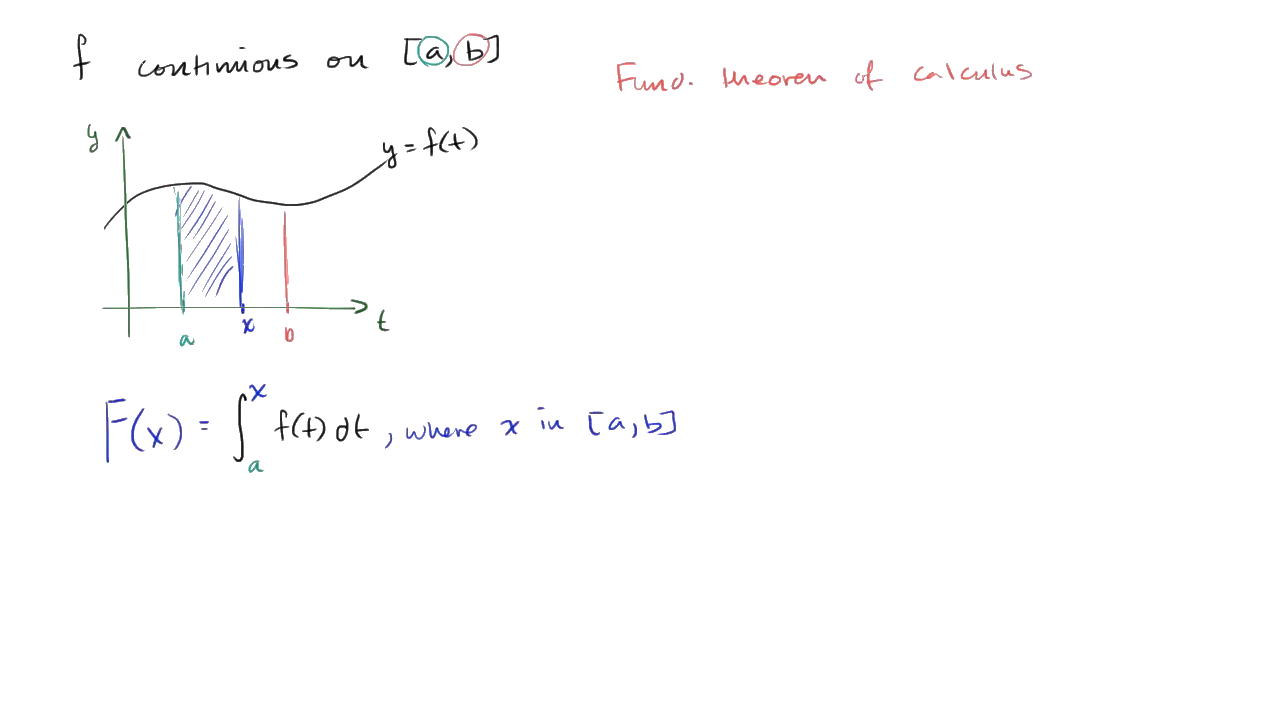 f continuous on [a, b]
Fund. theorem of calculus
y
y = f(t)
t
a x b
F(x) = ∫ₐˣ f(t) dt, where x in [a, b]